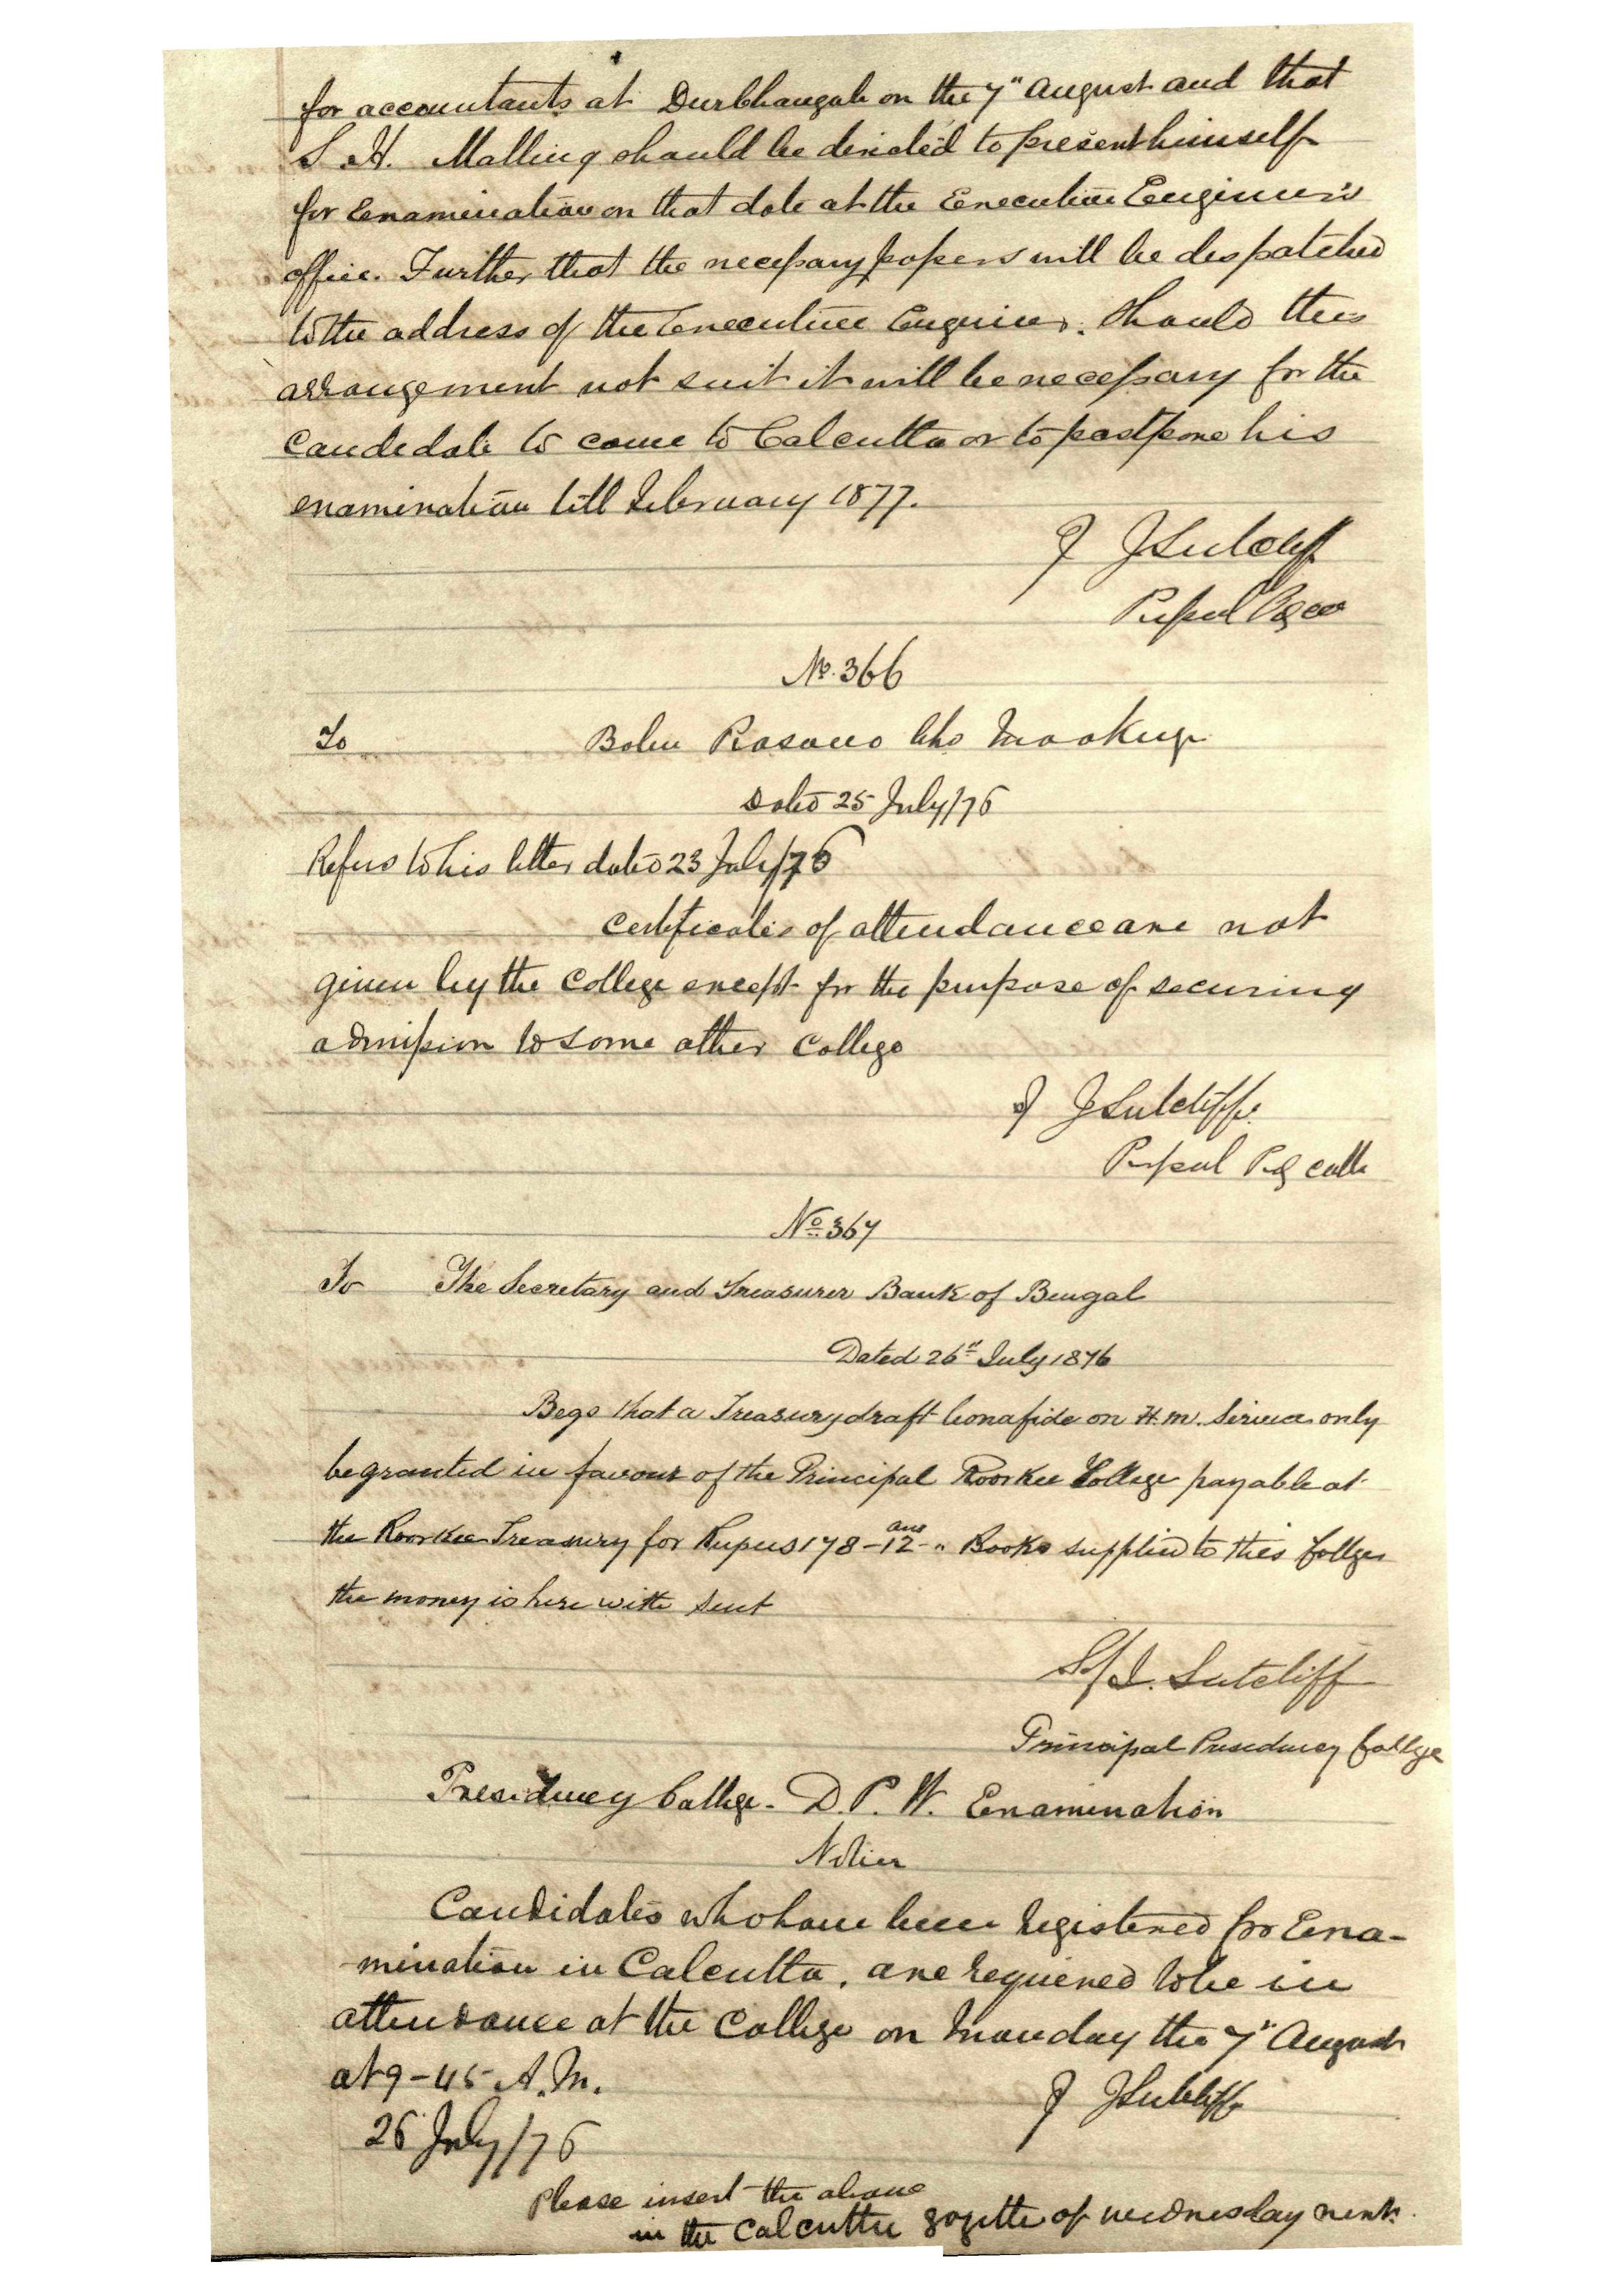 for accountants at Durbhangah on the 7" August and that
S. H. Malling should be directed to present himself
for Examination on that date at the Executive Engineer's
office. Further that the necessary papers will be despatched
to the address of the Executive Engineer. Should this
arrangement not suit it will be necessary for the
candidate to come to Calcutta or to postpone his
examination till February 1877.
J Sutcliff
No. 366
To Babu Mookerje
Dated 25 July/76
Refers to his letter dated 23 July/76
Certificates of attendance are not
given by the College except for the purpose of securing
admission to some other College
J Sutcliffe
No 367
To The Secretary and Treasurer Bank of Bengal
Dated 26th July 1876
Begs that a Treasury draft bonafide on H. M. Service only
be granted in favour of the Principal Roorkee College payable at
the Roorkee Treasury for Rupees 178-12 ans - " Books supplied to this College
the money is here with sent
Sd/ J. Sutcliff
Principal Presidency College
Presidency College - D. P. W. Examination
Notice
Candidates who have been registered for Exa-
mination in Calcutta, are required to be in
attendance at the College on Monday the 7" August
at 9-45 A.M.
J Sutcliff
26 July/76
Please insert the above
in the Calcutta gazette of wednesday next.